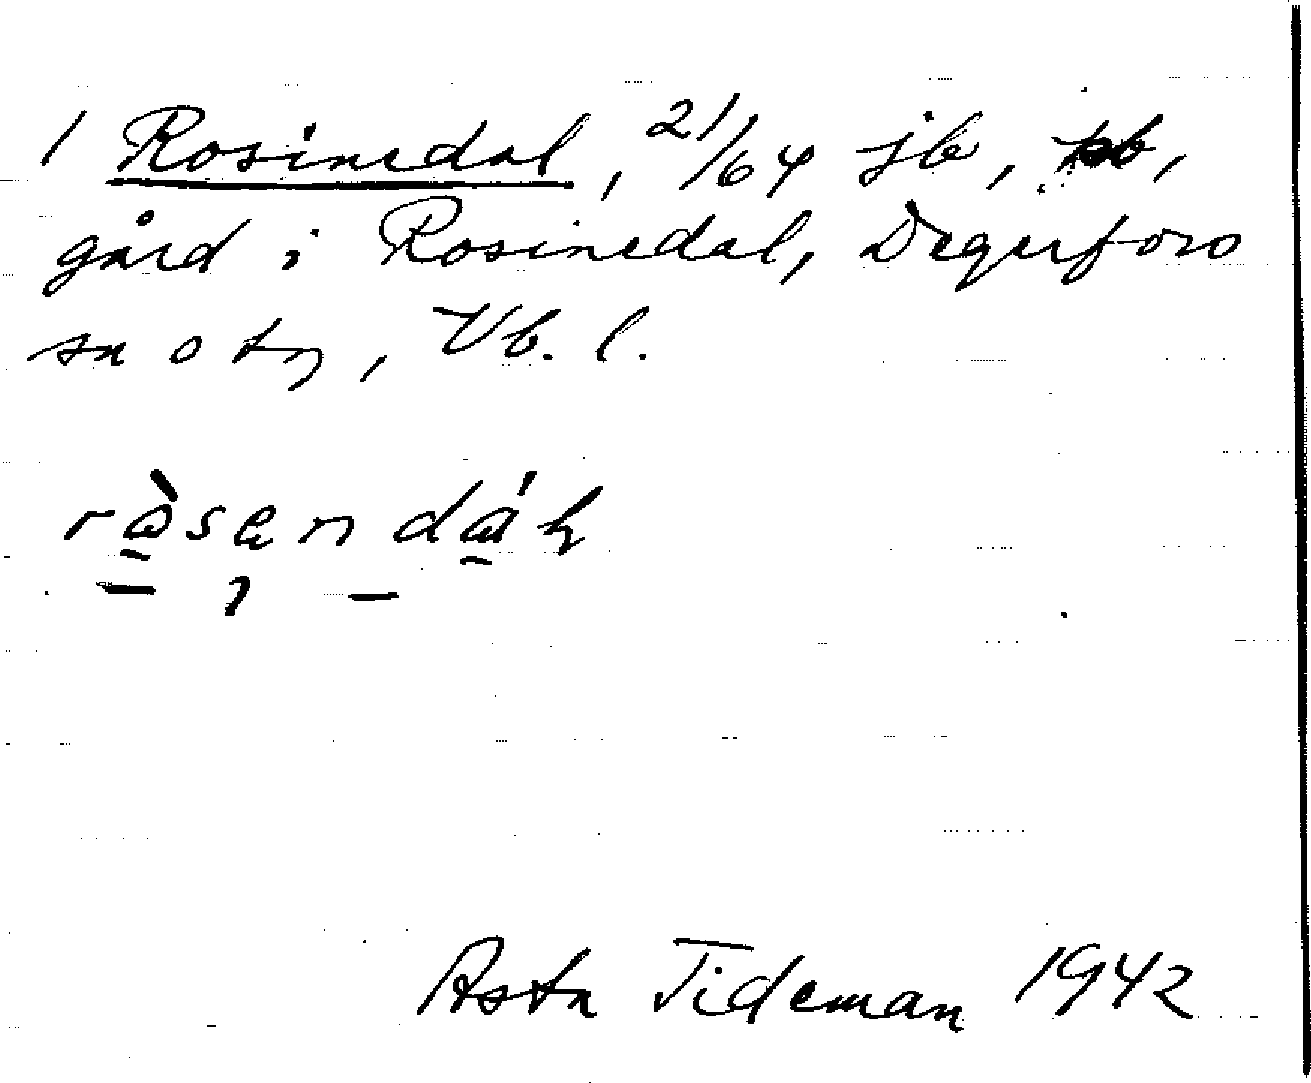 1 Rosinedal, 21/64 jb,
gård i Rosinedal, Degerfors
sn o tg, Vb. l.
Asta Tideman 1942